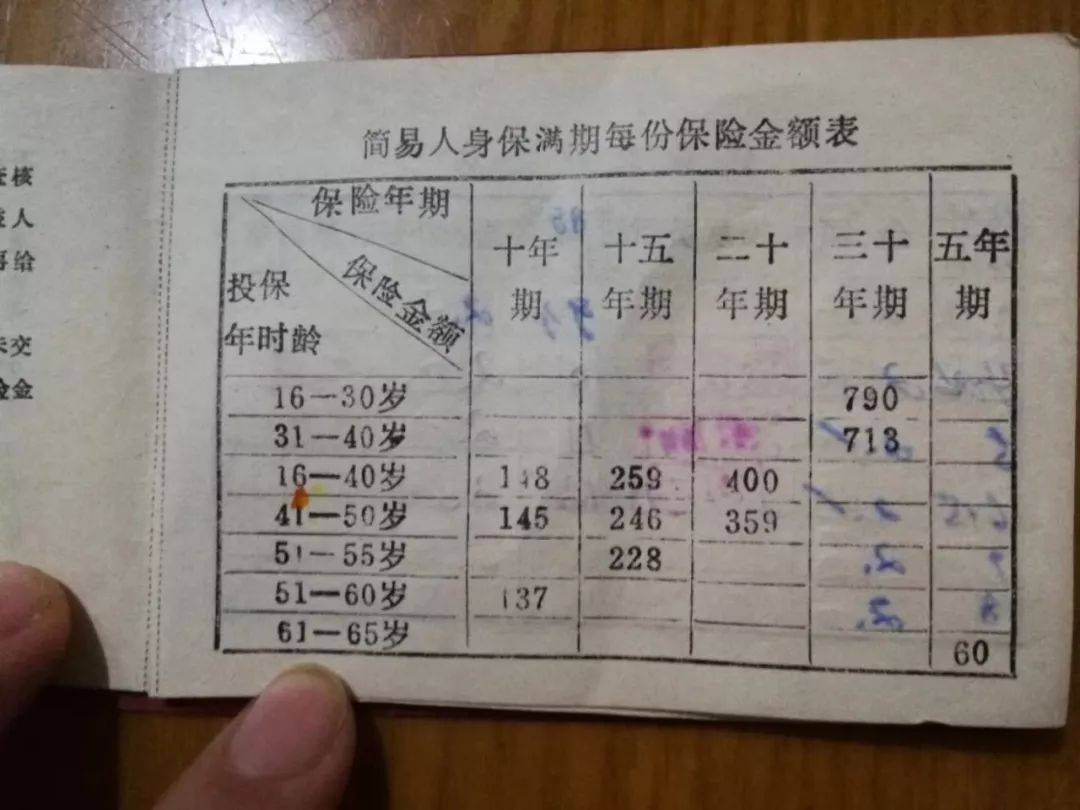 查核
人
再给
未交
险金
简易人身保满期每份保险金额表
保险年期
保险金额
投保
年时龄
十年
期
十五
年期
二十
年期
三十
年期
五年
期
16—30岁 790
31—40岁 713
16—40岁 148 259 400
41—50岁 145 246 359
51—55岁 228
51—60岁 137
61—65岁 60